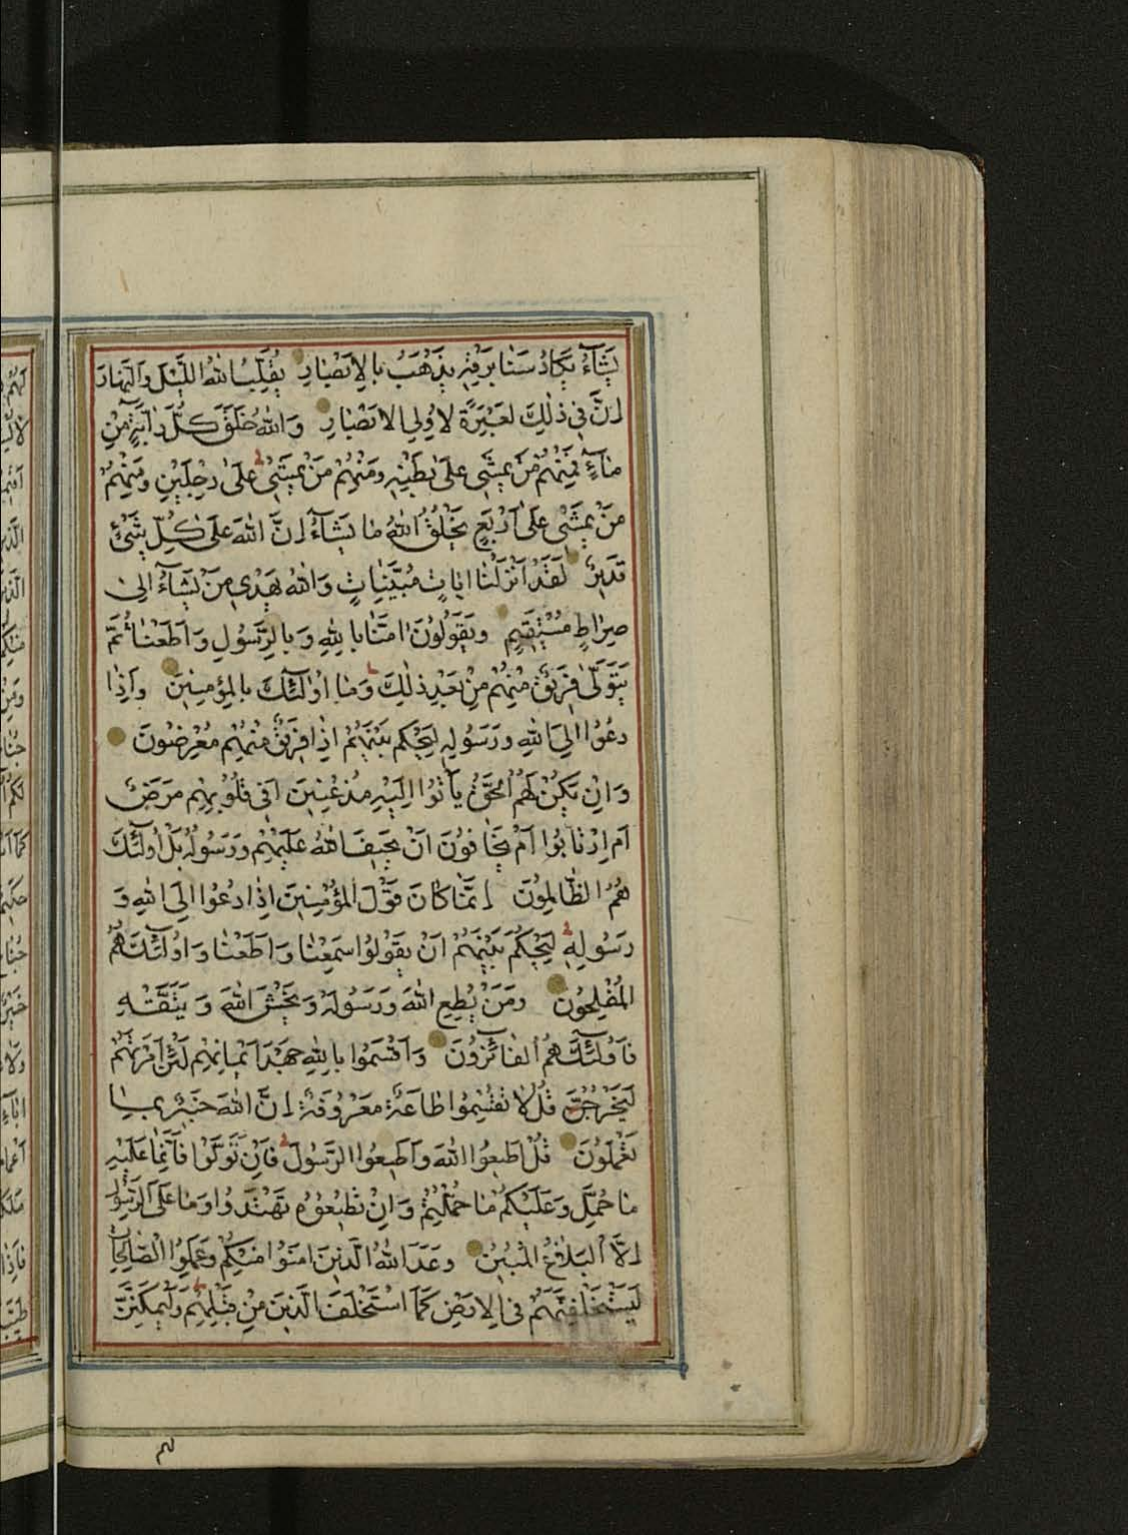 يَشَآءُ يَكَادُ سَنَا بَرْقِهِ يَذْهَبُ بِالْاَبْصَارِ يُقَلِّبُ اللهُ اللَّيْلَ وَالنَّهَارَ
اِنَّ فِي ذٰلِكَ لَعِبْرَةً لِاُولِي الْاَبْصَارِ وَاللهُ خَلَقَ كُلَّ دَابَّةٍ مِنْ
مَآءٍ فَمِنْهُمْ مَنْ يَمْشِي عَلٰى بَطْنِهِ وَمِنْهُمْ مَنْ يَمْشِي عَلٰى رِجْلَيْنِ وَمِنْهُمْ
مَنْ يَمْشِي عَلٰى اَرْبَعٍ يَخْلُقُ اللهُ مَا يَشَآءُ اِنَّ اللهَ عَلٰى كُلِّ شَيْءٍ
قَدِيرٌ لَقَدْ اَنْزَلْنَا اٰيَاتٍ مُبَيِّنَاتٍ وَاللهُ يَهْدِي مَنْ يَشَآءُ اِلٰى
صِرَاطٍ مُسْتَقِيمٍ وَيَقُولُونَ اٰمَنَّا بِاللهِ وَبِالرَّسُولِ وَاَطَعْنَا ثُمَّ
يَتَوَلّٰى فَرِيقٌ مِنْهُمْ مِنْ بَعْدِ ذٰلِكَ وَمَا اُولٰئِكَ بِالْمُؤْمِنِينَ وَاِذَا
دُعُوا اِلَى اللهِ وَرَسُولِهِ لِيَحْكُمَ بَيْنَهُمْ اِذَا فَرِيقٌ مِنْهُمْ مُعْرِضُونَ
وَاِنْ يَكُنْ لَهُمُ الْحَقُّ يَأْتُوا اِلَيْهِ مُذْعِنِينَ اَفِي قُلُوبِهِمْ مَرَضٌ
اَمِ ارْتَابُوا اَمْ يَخَافُونَ اَنْ يَحِيفَ اللهُ عَلَيْهِمْ وَرَسُولُهُ بَلْ اُولٰئِكَ
هُمُ الظَّالِمُونَ اِنَّمَا كَانَ قَوْلَ الْمُؤْمِنِينَ اِذَا دُعُوا اِلَى اللهِ وَ
رَسُولِهِ لِيَحْكُمَ بَيْنَهُمْ اَنْ يَقُولُوا سَمِعْنَا وَاَطَعْنَا وَاُولٰئِكَ هُمُ
الْمُفْلِحُونَ وَمَنْ يُطِعِ اللهَ وَرَسُولَهُ وَيَخْشَ اللهَ وَيَتَّقْهِ
فَاُولٰئِكَ هُمُ الْفَآئِزُونَ وَاَقْسَمُوا بِاللهِ جَهْدَ اَيْمَانِهِمْ لَئِنْ اَمَرْتَهُمْ
لَيَخْرُجُنَّ قُلْ لَا تُقْسِمُوا طَاعَةٌ مَعْرُوفَةٌ اِنَّ اللهَ خَبِيرٌ بِمَا
تَعْمَلُونَ قُلْ اَطِيعُوا اللهَ وَاَطِيعُوا الرَّسُولَ فَاِنْ تَوَلَّوْا فَاِنَّمَا عَلَيْهِ
مَا حُمِّلَ وَعَلَيْكُمْ مَا حُمِّلْتُمْ وَاِنْ تُطِيعُوهُ تَهْتَدُوا وَمَا عَلَى الرَّسُولِ
اِلَّا الْبَلَاغُ الْمُبِينُ وَعَدَ اللهُ الَّذِينَ اٰمَنُوا مِنْكُمْ وَعَمِلُوا الصَّالِحَاتِ
لَيَسْتَخْلِفَنَّهُمْ فِي الْاَرْضِ كَمَا اسْتَخْلَفَ الَّذِينَ مِنْ قَبْلِهِمْ وَلَيُمَكِّنَنَّ
لهم